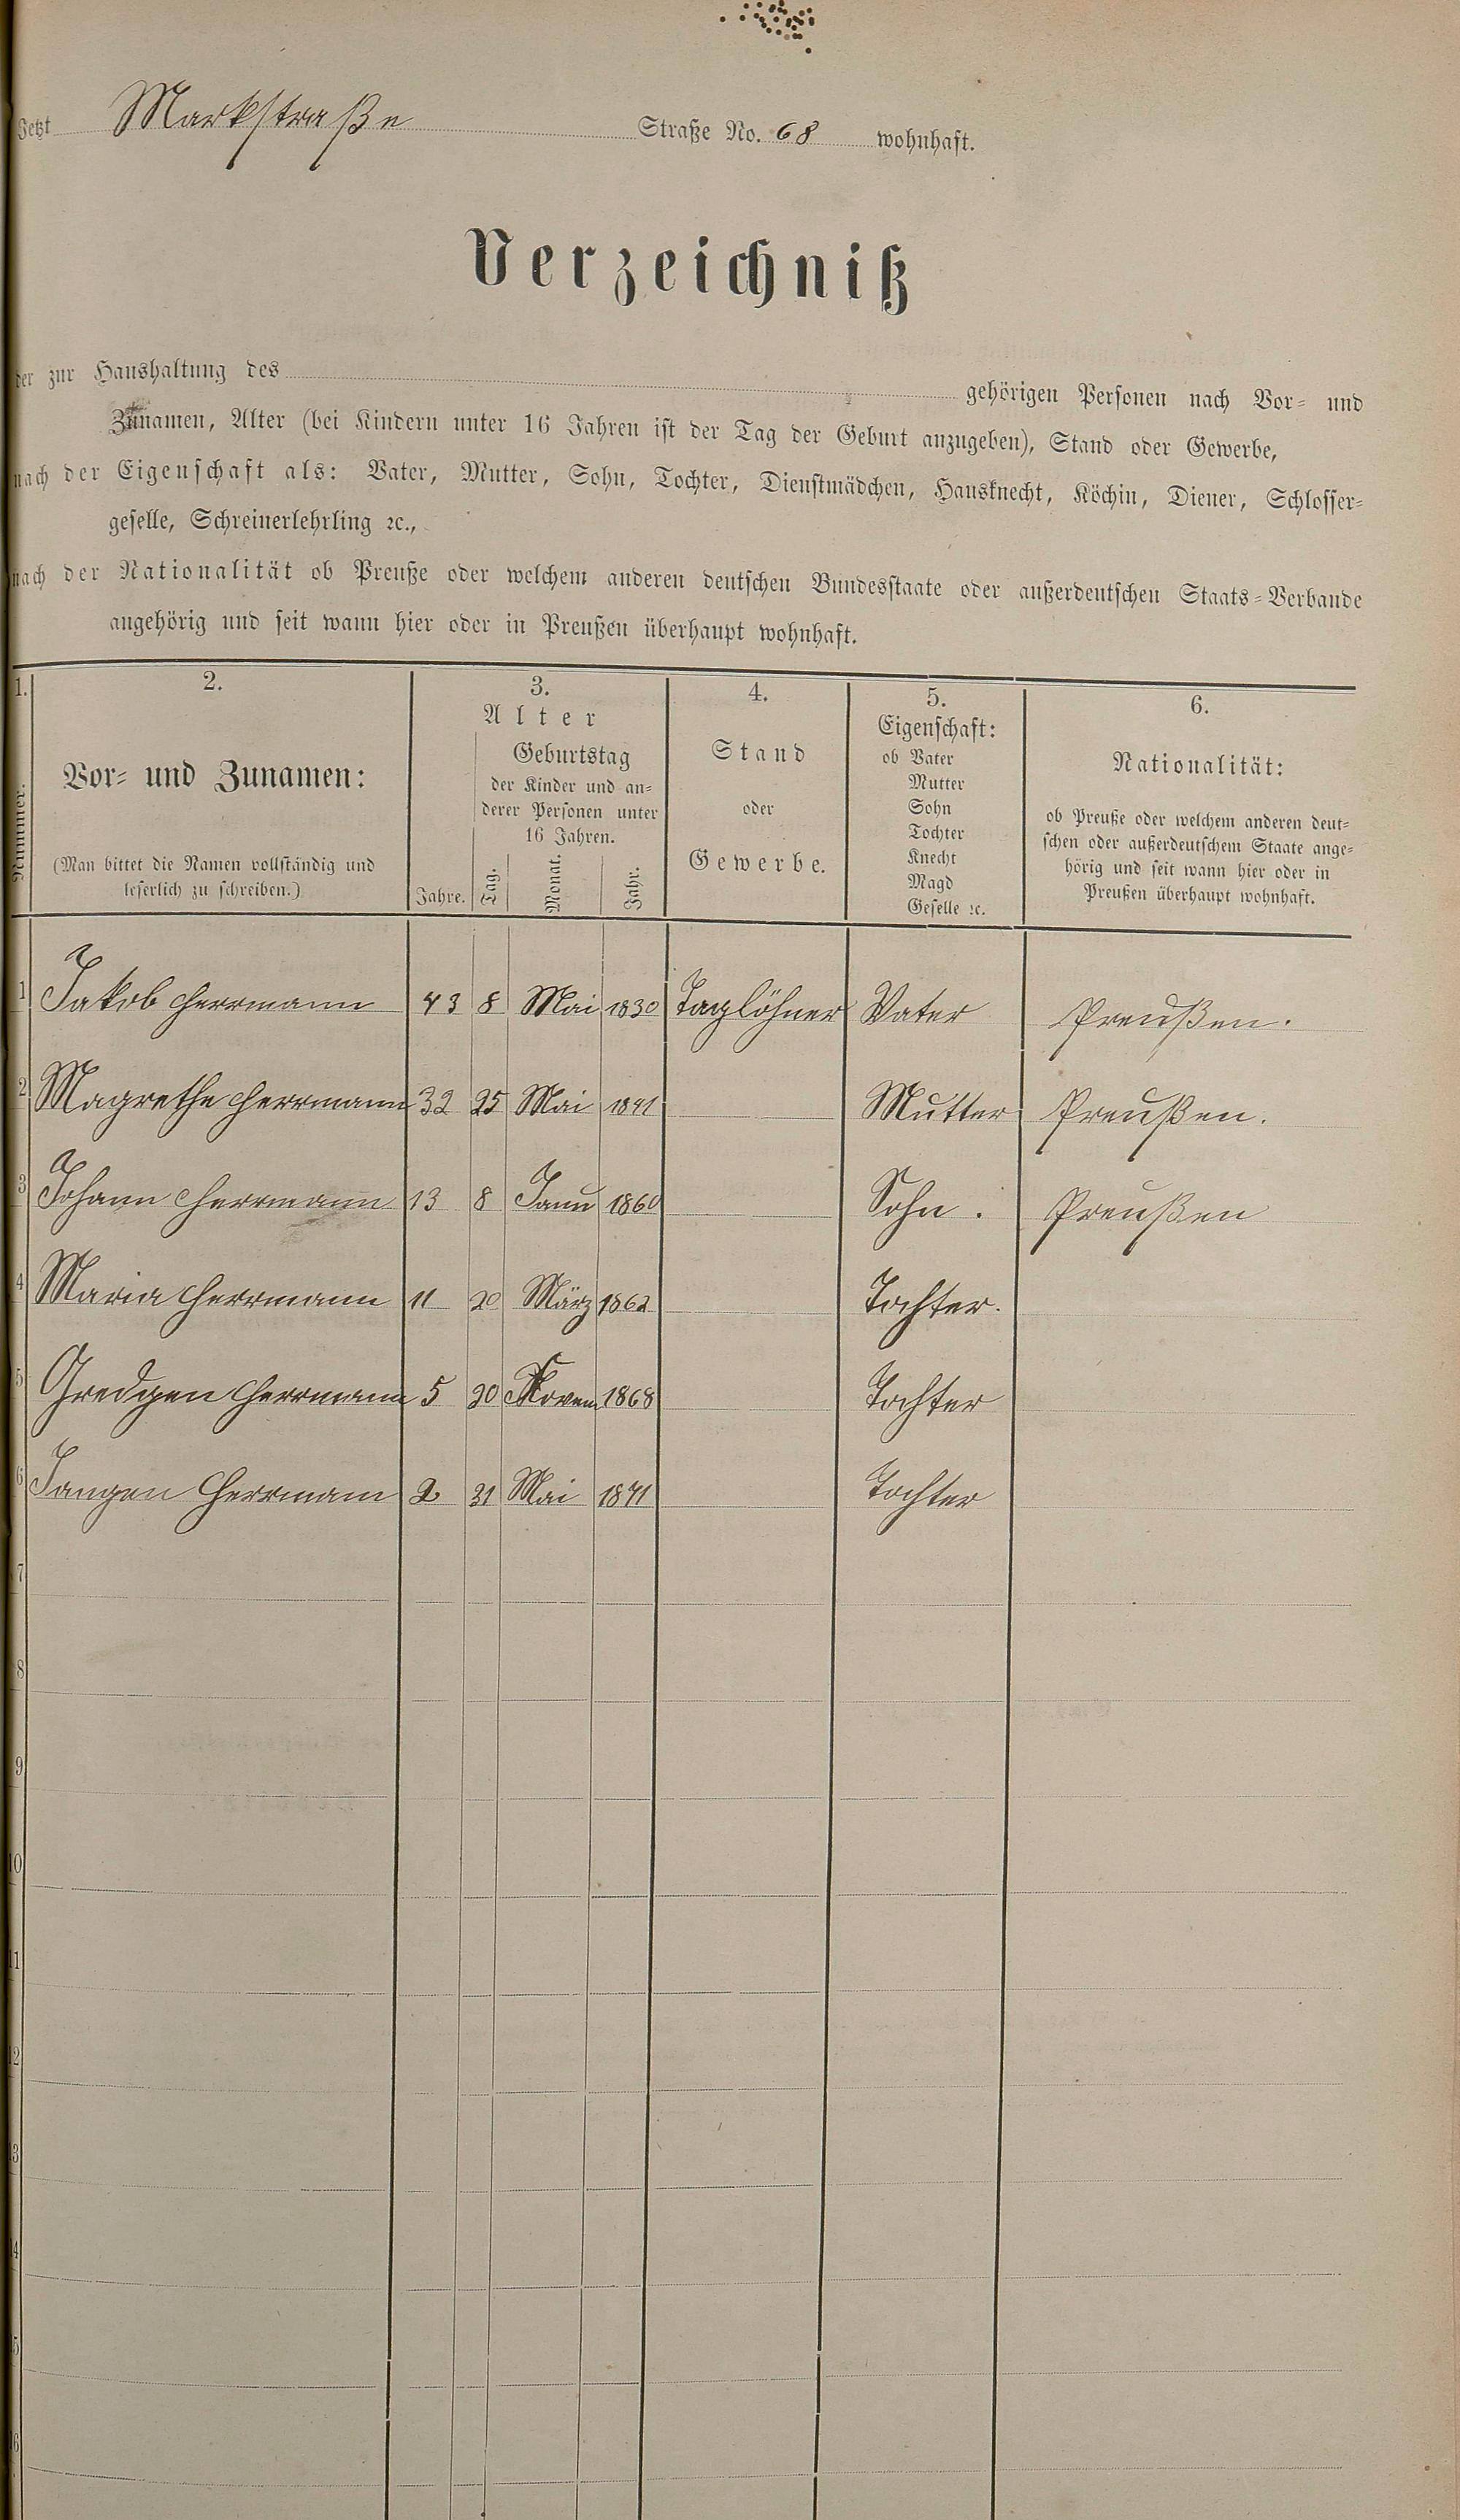 Jetzt Markstraße Straße No. 68 wohnhaft.
Verzeichniß
der zur Haushaltung des gehörigen Personen nach Vor- und
Zunamen, Alter (bei Kindern unter 16 Jahren ist der Tag der Geburt anzugeben), Stand oder Gewerbe,
nach der Eigenschaft als: Vater, Mutter, Sohn, Tochter, Dienstmädchen, Hausknecht, Köchin, Diener, Schlosser-
geselle, Schreinerlehrling ꝛc.,
nach der Nationalität ob Preuße oder welchem anderen deutschen Bundesstaate oder außerdeutschen Staats-Verbande
angehörig und seit wann hier oder in Preußen überhaupt wohnhaft.
1. 2. 3. 4. 5. 6.
Nummer.
Vor- und Zunamen:
(Man bittet die Namen vollständig und
leserlich zu schreiben.)
Alter
Jahre.
Geburtstag
der Kinder und an-
derer Personen unter
16 Jahren.
Tag. Monat. Jahr.
Stand
oder
Gewerbe.
Eigenschaft:
ob Vater
Mutter
Sohn
Tochter
Knecht
Magd
Geselle ꝛc.
Nationalität:
ob Preuße oder welchem anderen deut-
schen oder außerdeutschem Staate ange-
hörig und seit wann hier oder in
Preußen überhaupt wohnhaft.
1 Jakob Herrmann 43 8 Mai 1830 Taglöhner Vater Preußen.
2 Magrethe Herrmann 32 25 Mai 1841 Mutter Preußen.
3 Johann Herrmann 13 8 Janu 1860 Sohn. Preußen
4 Maria Herrmann 11 20 März 1862 Tochter.
5 Gredgen Herrmann 5 20 Novem 1868 Tochter
6 Herrmann 2 31 Mai 1871 Tochter
7
8
9
10
11
12
13
14
15
16